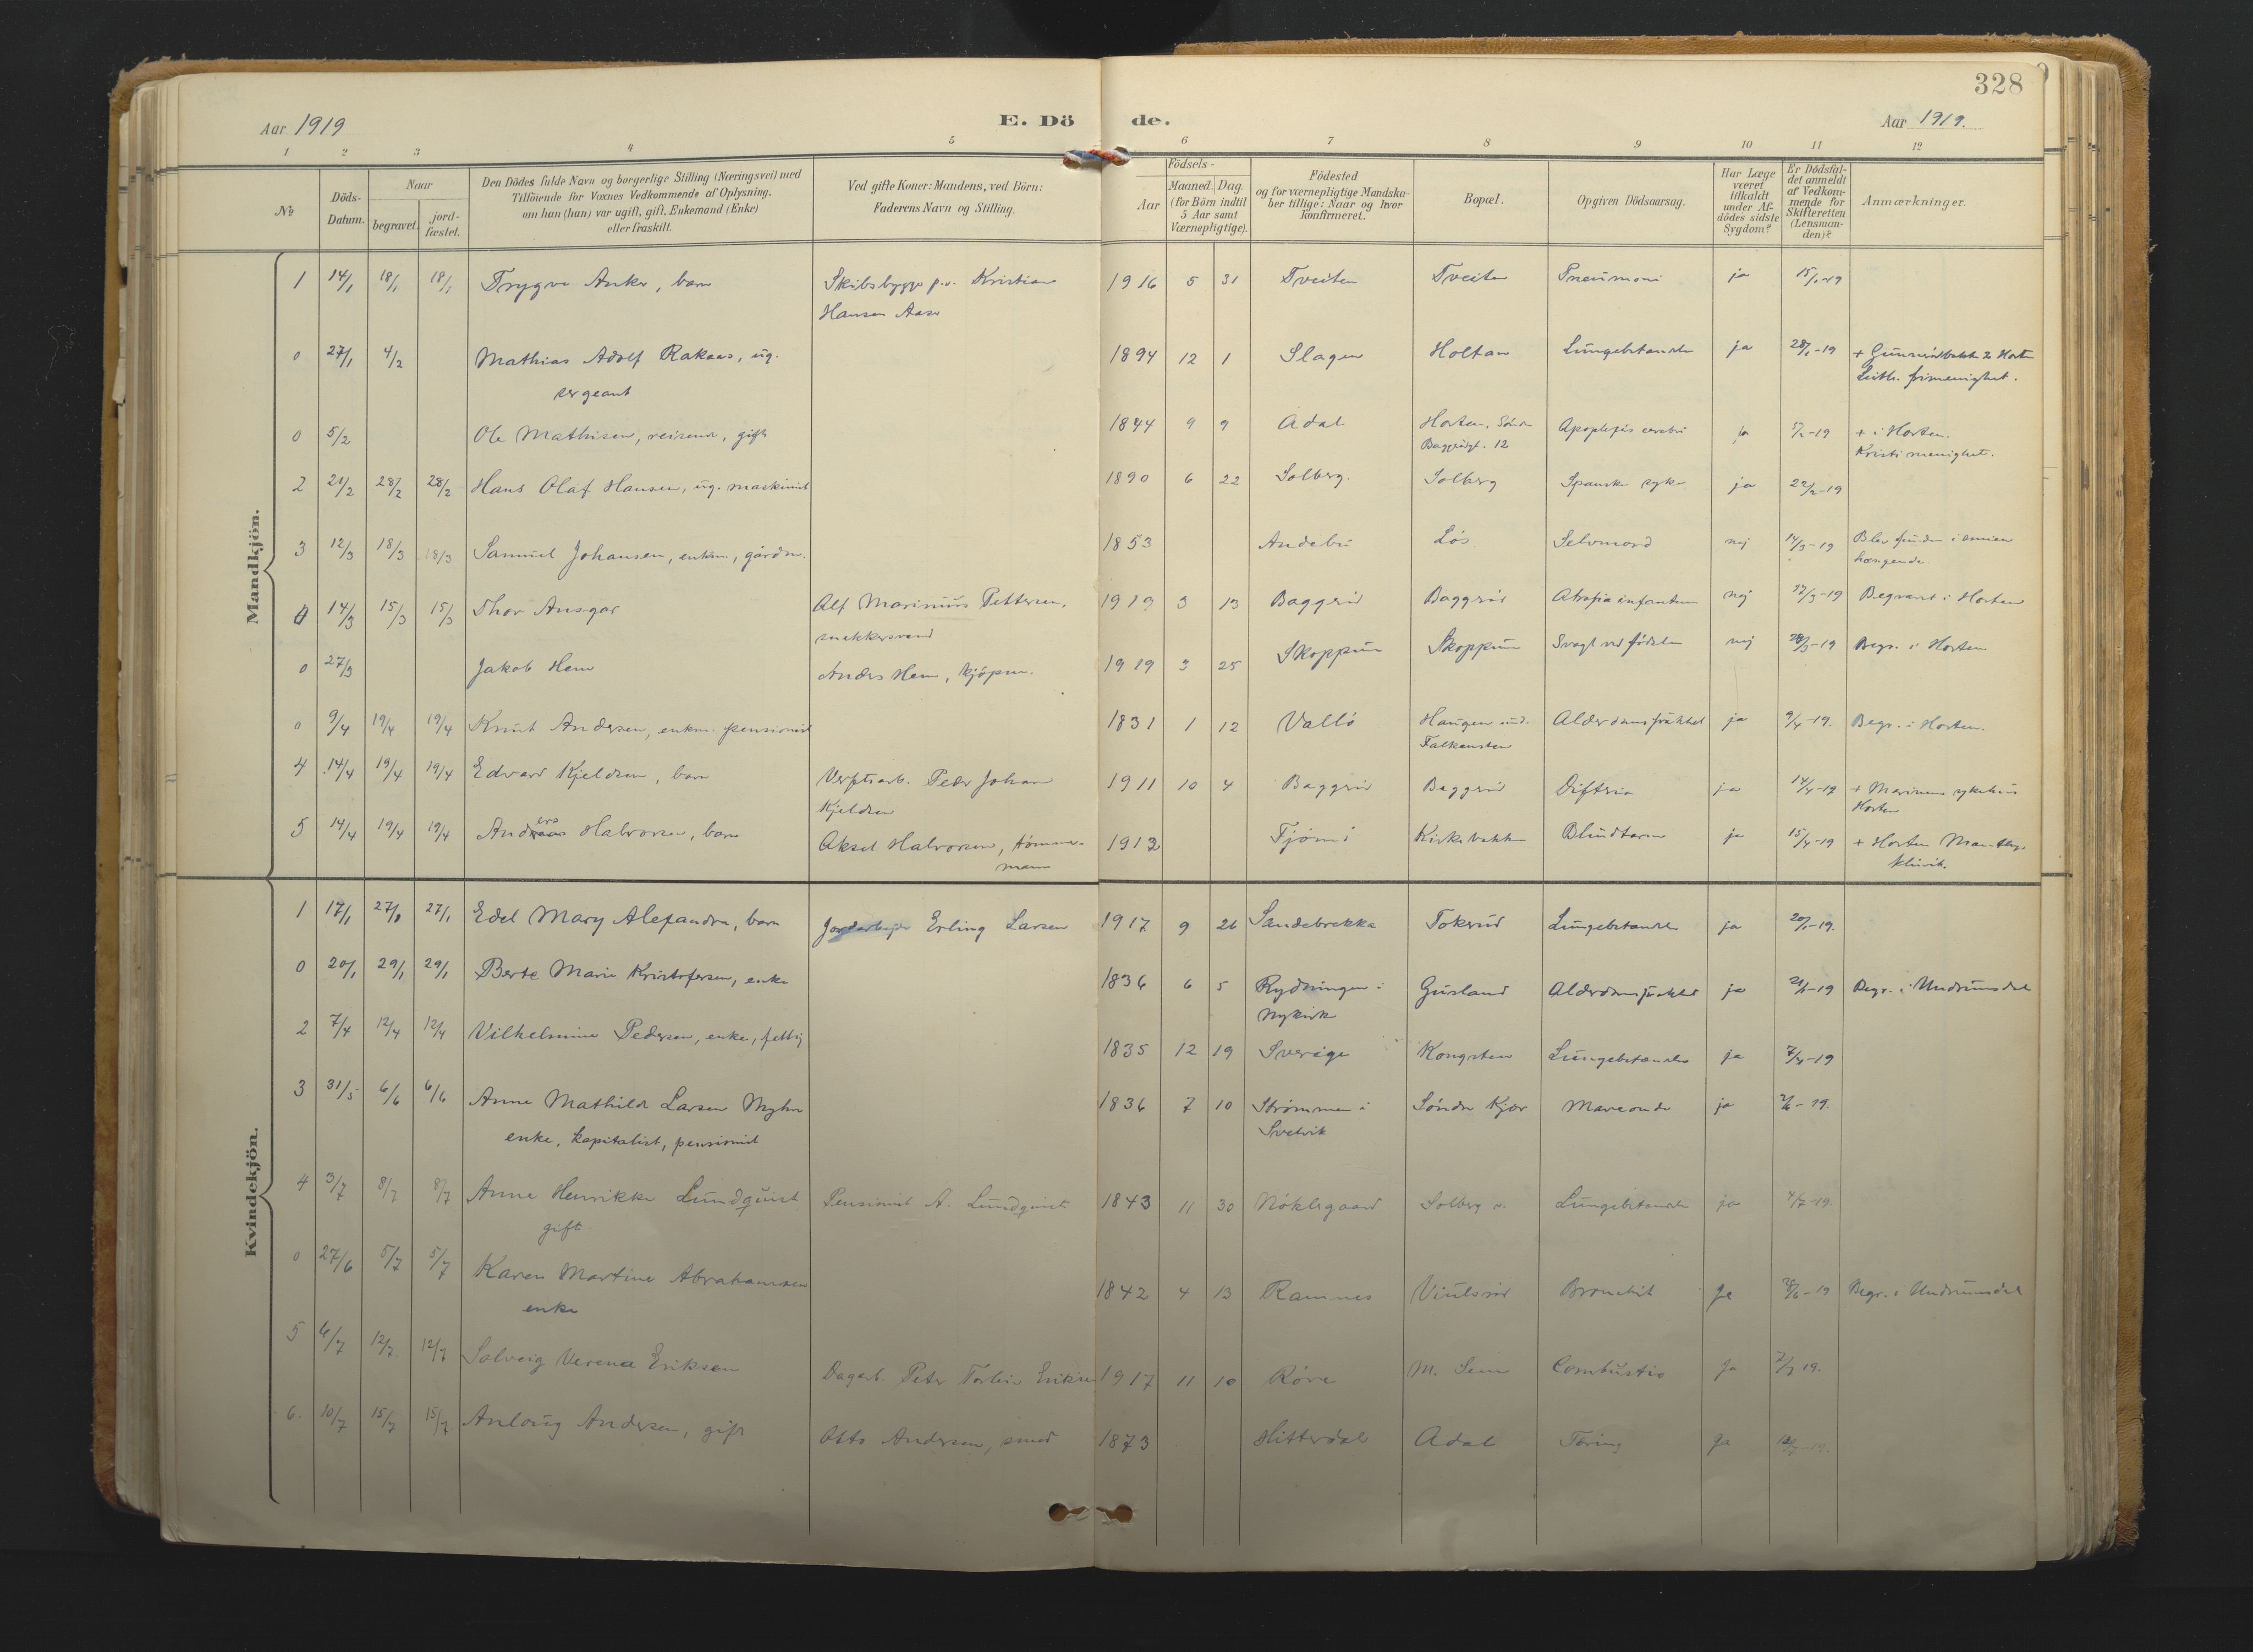 328
Aar 1919
E. Döde.
Aar 1919.
1 2 3 4 5 6 7 8 9 10 11 12
№
Döds-Datum.
Naar
begravet.
jord-fæstet.
Den Dödes fulde Navn og borgerlige Stilling (Næringsvei) med
Tilföiende for Voxnes Vedkommende af Oplysning,
om han (hun) var ugift, gift, Enkemand (Enke)
eller fraskilt.
Ved gifte Koner: Mandens, ved Börn:
Faderens Navn og Stilling.
Födsels-
Aar
Maaned. Dag.
(for Börn indtil
5 Aar samt
Værnepligtige).
Födested
og for værnepligtige Mandska-
ber tillige: Naar og hvor
konfirmeret.
Bopæl.
Opgiven Dödsaarsag.
Har Læge
været
tilkaldt
under Af-
dödes sidste
Sygdom?
Er Dödsfal-
det anmeldt
af Vedkom-
mende for
Skifteretten
(Lensman-
den)?
Anmærkninger.
Mandkjön.
1 14/1 18/1 18/1 Trygve Anker, barn Skibsbygger Kristian 1916 5 31 Tveiten Tveiten Pneumoni ja 15/1-19
Hansen Aase
0 27/1 4/2 Mathias Adolf Rakaas, ug. 1894 12 1 Slagen Holtan Lungebetændelse ja 28/1-19
sergeant Luth. frimenighet.
0 5/2 Ole Mathisen, reisende, gift 1844 9 9 Adal Horten, Söndre Apoplexia cerebri ja 5/2-19 + i Horten.
Baggerödgt. 12 Kristi menighet.
2 21/2 28/2 28/2 Hans Olaf Hansen, ug. maskinist 1890 6 22 Solberg. Solberg Spanske syke ja 22/2-19
3 12/3 18/3 18/3 Samuel Johansen, enkem., gårdm. 1853 Andebu Lös Selvmord nej 14/3-19 Blev funden i smien
hængende.
0 14/3 15/3 15/3 Thor Ansgar Alf Marinius Pettersen, 1919 3 13 Baggeröd Baggeröd Atrofia infantum nej 17/3-19 Begravet i Horten
snekkersvend
0 27/3 Jakob Hem Anders Hem, kjöpm. 1919 3 25 Skoppum Skoppum Svagt ved födselen nej 28/3-19 Begr. i Horten
0 9/4 19/4 19/4 Knut Andersen, enkm. pensionist 1831 1 12 Vallö Haugen und. Alderdomsfrækkel ja 9/4-19. Begr. i Horten.
Falkensten
4 14/4 19/4 19/4 Edvard Kjeldsen, barn Verftsarb. Peder Johan 1911 10 4 Baggeröd Baggeröd Difteria ja 14/4-19 + Marinens sykehus
Kjeldsen Horten
5 14/4 19/4 19/4 Anders Halvorsen, barn Aksel Halvorsen, tömmer- 1912 Tjömö Kirkebakken Blindtarm ja 15/4-19
mann klinik.
Kvindekjön.
1 17/1 27/1 27/1 Edel Mary Alexandra, barn Jordarbejder Erling Larsen 1917 9 26 Sandebrekka Tokerud Lungebetændelse ja 20/1-19.
0 20/1 29/1 29/1 Berte Marie Kristofersen, enke 1836 6 5 Rydningen i Gusland ja 21/1-19 Begr. i Undrumsdal
Nykirk
2 7/4 12/4 12/4 Vilhelmine Pedersen, enke, fattig 1835 12 19 Sverige Kongsten Lungebetændelse ja 7/4-19
3 31/5 6/6 6/6 Anne Mathilde Larsen Myhre 1836 7 10 Strömmen i Söndre Kjær Maveonde ja 2/6-19.
enke, kapitalist, pensionist Svelvik
4 3/7 8/7 8/7 Anne Henrikke Lundquist Pensionist A. Lundquist 1843 11 30 Nöklegaard Solberg n. Lungebetændelse ja 4/7-19.
gift.
0 27/6 5/7 5/7 Karen Martine Abrahamsen 1842 4 13 Ramnes Viulsröd Bronchit ja 28/6-19 Begr. i Undrumsdal
enke
5 6/7 12/7 12/7 Solveig Verena Eriksen Dagarb. Peter Torleiv Eriksen 1917 11 10 Röre M. Sem Combustio ja 7/7 19.
6. 10/7 15/7 15/7 Anlaug Andersen, gift Otto Andersen, smed 1873 Hitterdal Adal Tæring ja 12/7-19.